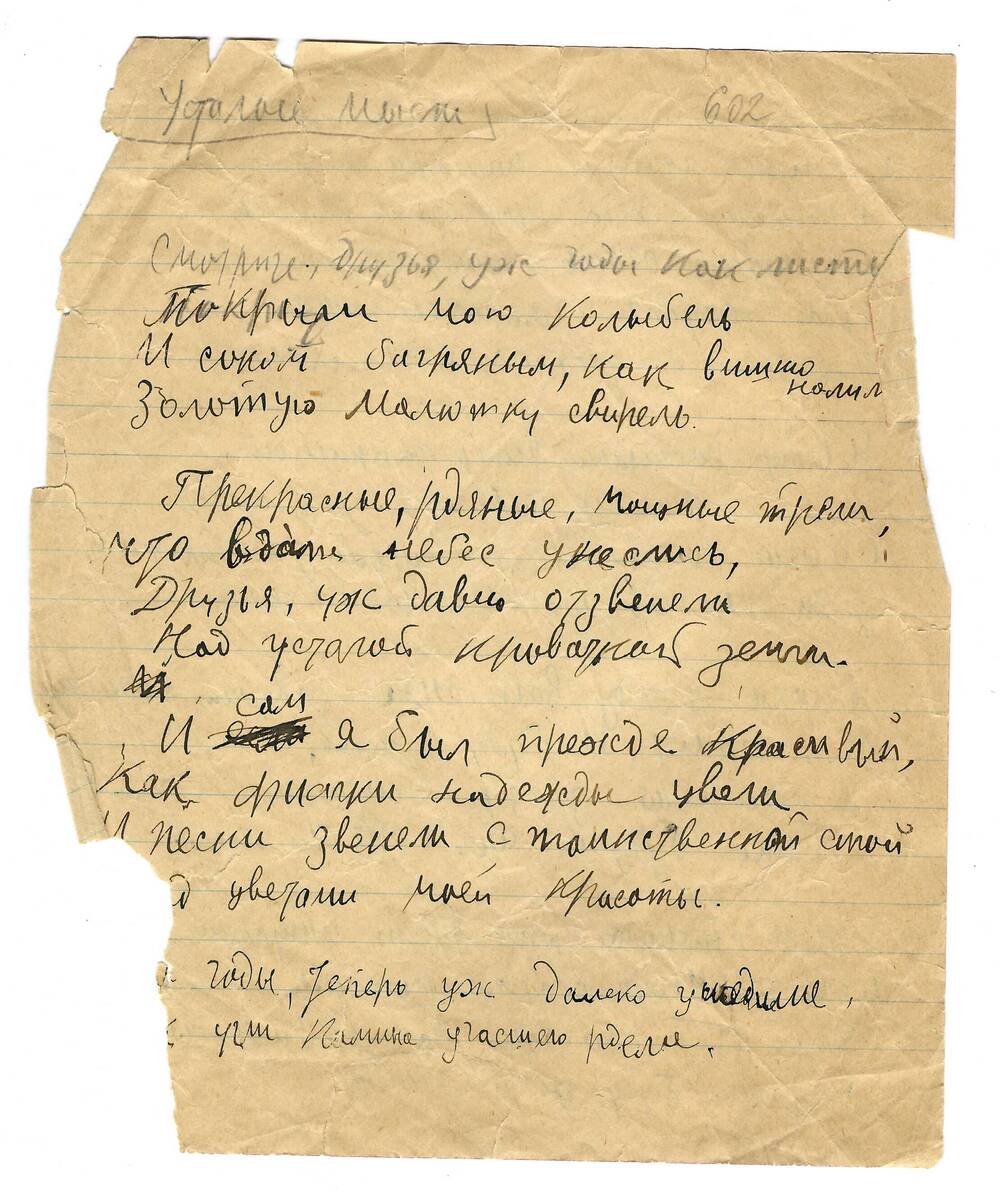 Усталые мысли
602
Смотрите, друзья, уж годы как листы
Покрыли мою колыбель
И соком багряным, как вишню налил
Золотую малютку свирель.
Прекрасные, рдяные, мощные трели,
Что вдали небес унеслись,
Друзья, уж давно отзвенели
Над усталой кроваткой земли.
И сам я был прежде красивый,
Как фиалки надежды цвели
И песни звенели с таинственной силой
д цветами моей красоты.
годы, теперь уж далеко ушедшие,
к угли камина угасшего рдели.